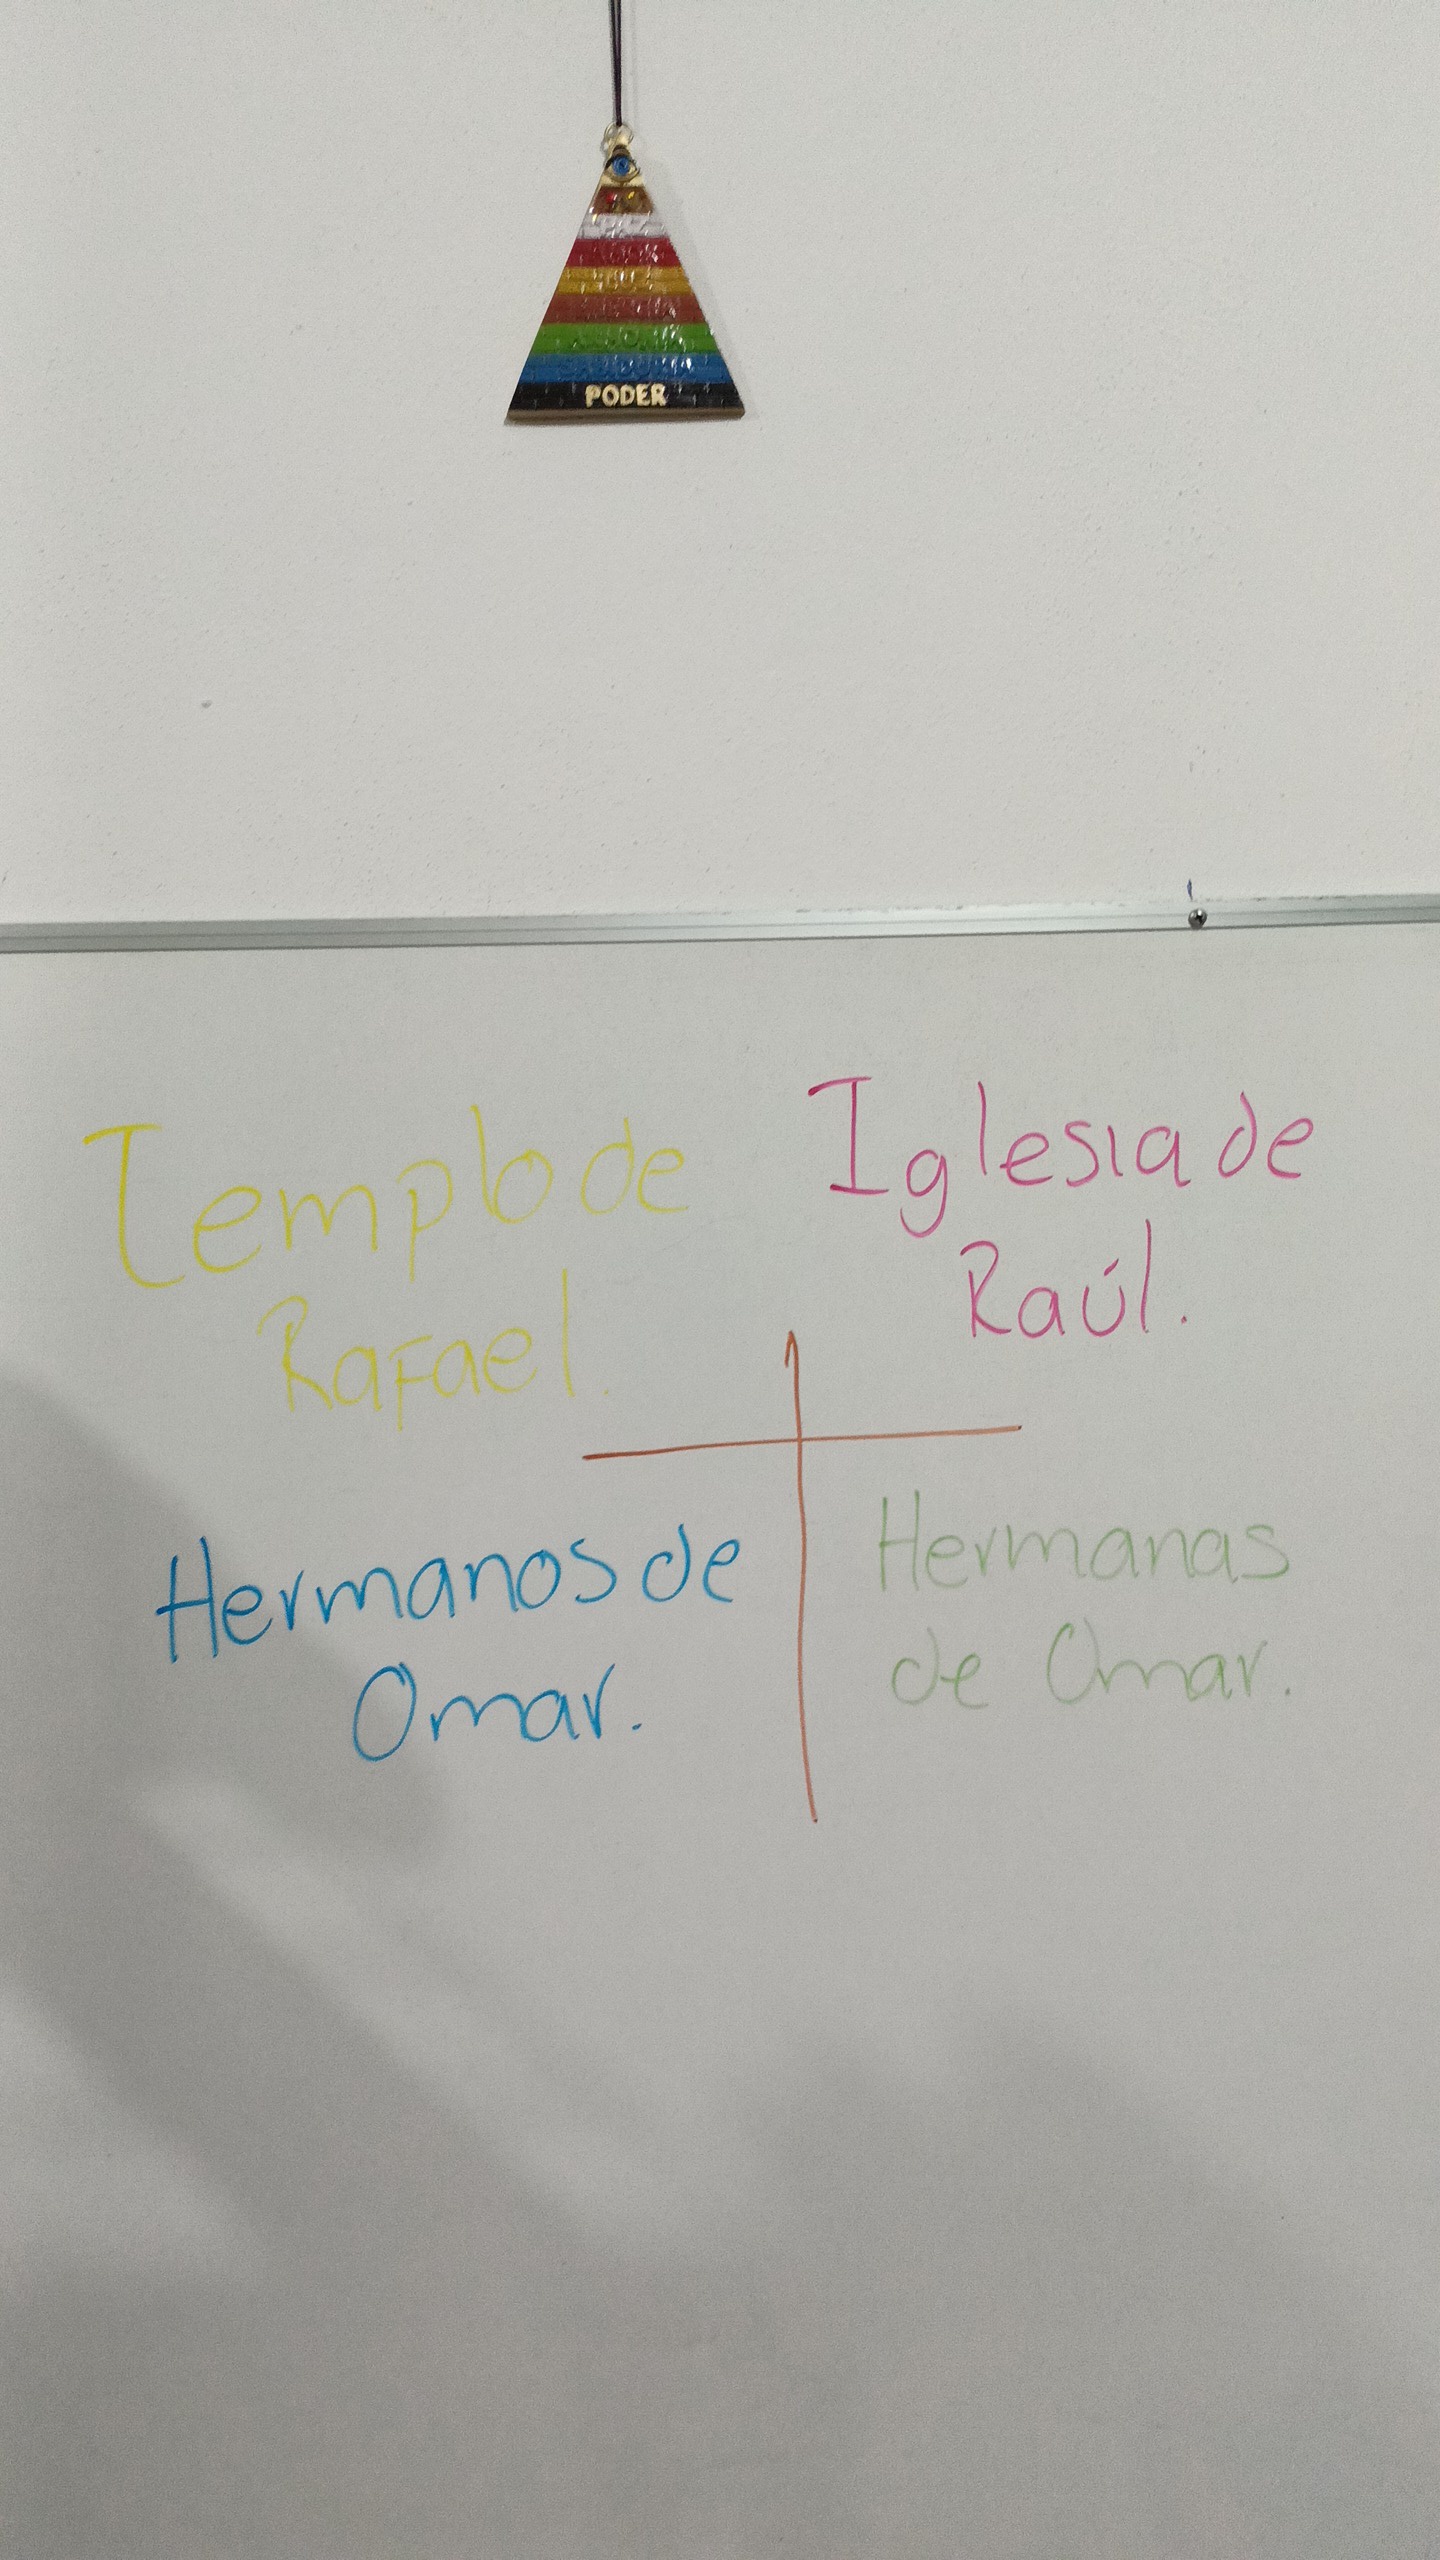 PODER
Templo de
Rafael.
Iglesia de
Raúl.
Hermanos de
Omar.
Hermanas
de Omar.